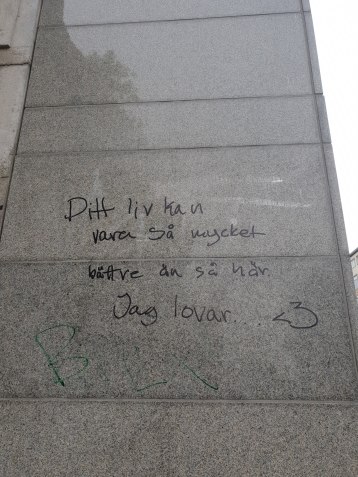 Ditt liv kan
vara så mycket
bättre än så här.
Jag lovar... <3